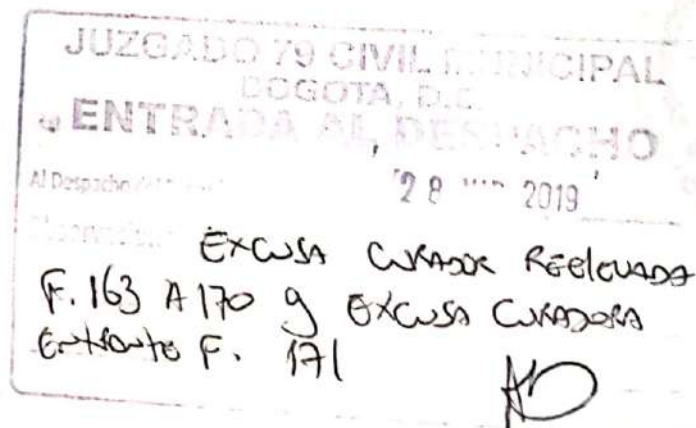 JUZGADO 79 CIVIL MUNICIPAL
BOGOTA, D.C.
ENTRADA AL DESPACHO
Al Despacho
28 2019
EXCUSA CURADOR REELEVADA
F. 163 A 170 y EXCUSA CURADORA
Entrante F. 171